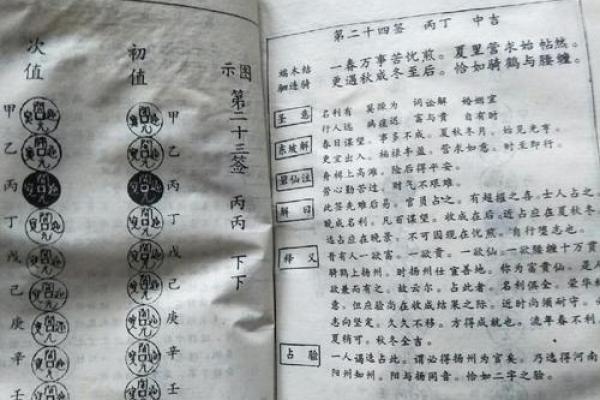 次值
初值
示图
第二十三签
丙丙
下下
甲
乙
丙
丁
戊
己
庚
辛
壬
甲
乙
丙
丁
戊
己
庚
辛
壬
第二十四签 丙丁 中吉
一春万事苦忧煎。夏里营求始帖然。
更遇秋成冬至后。恰如骑鹤与腰缠。
圣意
名利有 莫陈为 词讼解 婚姻宜
行人迟 病疫迟 富与贵 自有时
东坡解
春日谋望。事多不成。夏秋冬月。始见光亨。
更宜出入。福禄丰盈。营求如意。时至即行。
碧仙注
舟梢上高滩。险后得平安。
劳心勤苦过。财气不艰难。
解曰
此签先难后易。官员占之。有超擢之喜。士人占之。
晚成名利。凡百谋望。收成在后。近占应在夏秋冬。
远占应在晚景。不可因现在忧煎。自行堕志也。
释义
昔有人一欲富。一欲贵。一欲仙。一欲腰缠十万贯
骑鹤上扬州。时扬州仕宦善地。称为富贵仙。是人
欲兼而有之。故云尔。占此者。名利俱全。荣华
意。但应验尚在收成结果之际。近时尚须耐守。
志向坚定。久久不移。方得成就也。流年春不利
夏稍可。秋冬全吉。
占验
一人谒选占此。谓必得扬州为官矣。乃选得河南
阳州知州。阳与扬同音。恰如二字之验。